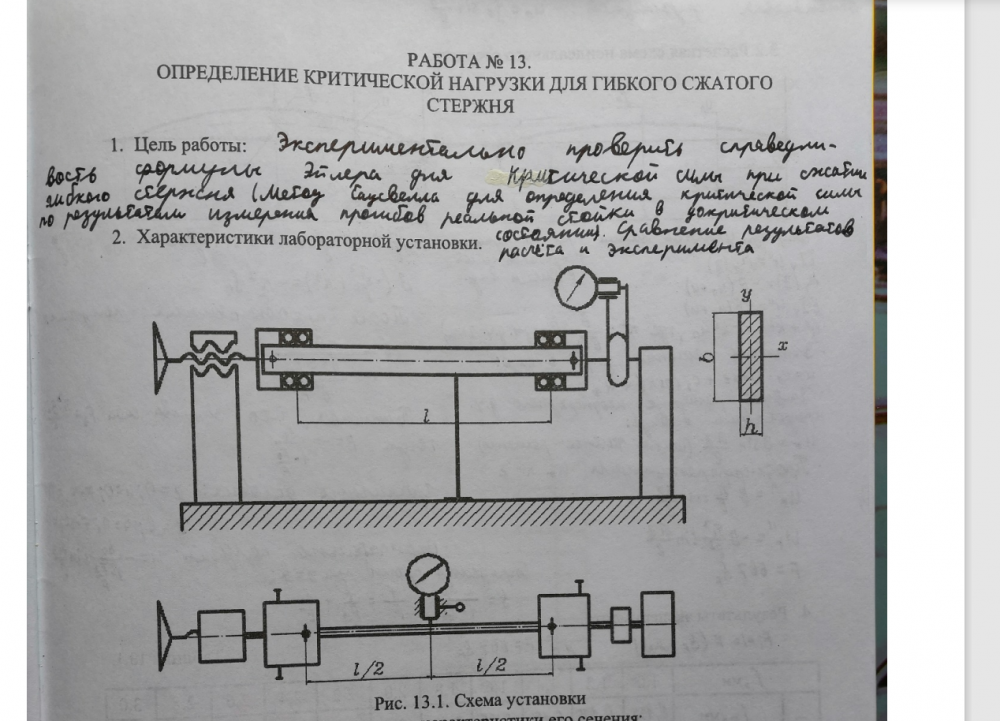 РАБОТА № 13.
ОПРЕДЕЛЕНИЕ КРИТИЧЕСКОЙ НАГРУЗКИ ДЛЯ ГИБКОГО СЖАТОГО
СТЕРЖНЯ
1. Цель работы: Экспериментально проверить справедли-
вость формулы Эйлера для критической силы при сжатии
гибкого стержня (Метод Саусвелла для определения критической силы
по результатам измерения прогибов реальной стойки в докритическом
2. Характеристики лабораторной установки. состоянии). Сравнение результатов
расчёта и эксперимента
y
x
b
h
l
l/2 l/2
Рис. 13.1. Схема установки
характеристики его сечения: